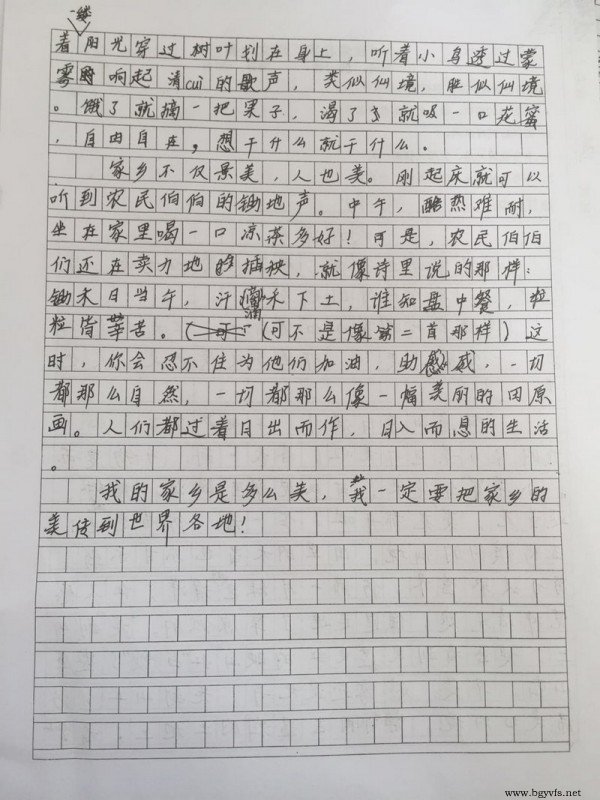 一缕
着阳光穿过树叶划在身上，听着小鸟透过蒙
雾 响起清cuì的歌声，类似仙境，胜似仙境
。饿了就摘一把果子，渴了 就吸一口花蜜
，自由自在，想干什么就干什么。
家乡不仅景美，人也美。刚起床就可以
听到农民伯伯的锄地声。中午，酷热难耐，
坐在家里喝一口凉茶多好！可是，农民伯伯
们还在卖力地 插秧，就像诗里说的那样：
锄禾日当午，汗滴禾下土，谁知盘中餐，粒
粒皆辛苦。（可不是像 二首那样）这
时，你会忍不住为他们加油，助威，一切
都那么自然，一切都那么像一幅美丽的田原
画。人们都过着日出而作，日入而息的生活
。
我的家乡是多么美，我一定要把家乡的
美传到世界各地！
www.bgyvfs.net